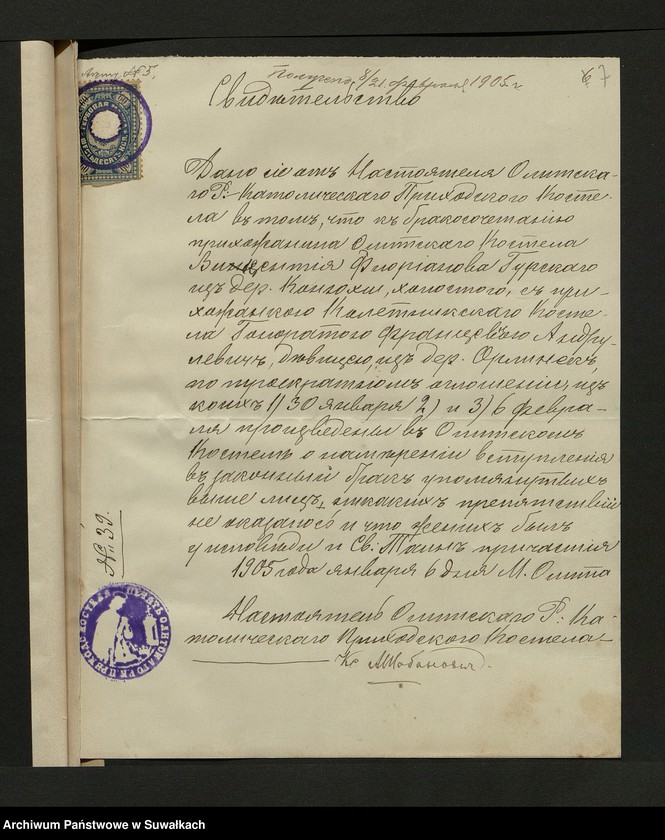 Аннр. № 5.
Получено 8/21 февраля 1905 г
6 7
Свидѣтельство
Дано сіе отъ Настоятеля Олитска-
го Р:-Католическаго Приходскаго Косте-
ла въ томъ, что къ бракосочетанію
прихожанина Олитскаго Костела
Викентія Флоріанова Гурскаго
изъ дер. Конюхи, холостого, съ при-
хожанкою Калетникскаго Косте-
ла Гоноратою Францевою Андру-
левичъ, дѣвицею, изъ дер. Орлинекъ,
по троекратномъ оглашеніи, изъ
коихъ 1) 30 января 2) и 3) 6 февра-
ля произведены въ Олитскомъ
Костелѣ о намѣреніи вступленія
въ законный бракъ упомянутыхъ
выше лицъ, никакихъ препятствій
не оказалось и что женихъ былъ
у исповѣди и Св: Таинъ причастія
1905 года января 6 дня М. Олита
Настоятель Олитскаго Р: Ка-
толическаго Приходскаго Костела
Кс
№ 39.
Archiwum Państwowe w Suwałkach